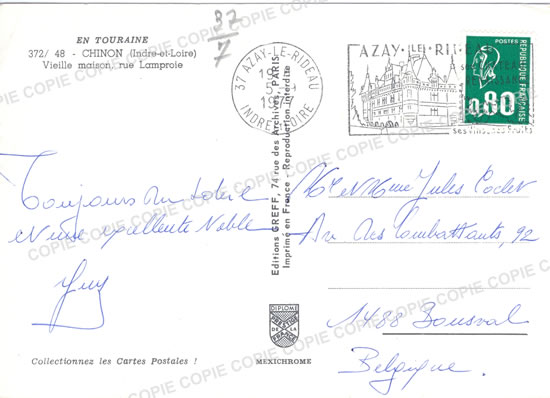 32
7
EN TOURAINE
372/ 48 - CHINON (Indre-et-Loire)
Vieille maison, rue Lamproie
37 AZAY-LE-RIDEAU
INDRE LOIRE
AZAY
ses vins, ses fruits
POSTES
REPUBLIQUE FRANÇAISE
0,80
Toujours
et une excellente
Guy
Editions GREFF, 74 rue des Archives, PARIS
Imprimé en France - Reproduction interdite
Mme Jules
Av des Combattants, 92
1488 Bousval
Belgique.
DIPLOME
PRESTIGE
DE LA
FRANCE
MEXICHROME
Collectionnez les Cartes Postales !
COPIE COPIE COPIE COPIE COPIE